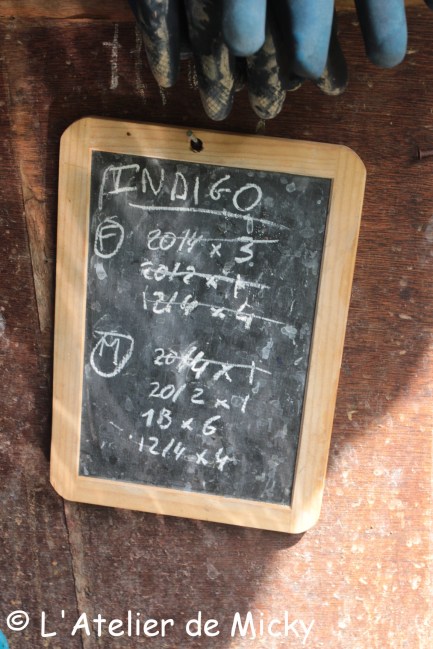 INDIGO
F
2014 x 3
2012 x 1
1214 x 4
M
2014 x 1
2012 x 1
1B x 6
1214 x 4
© L'Atelier de Micky